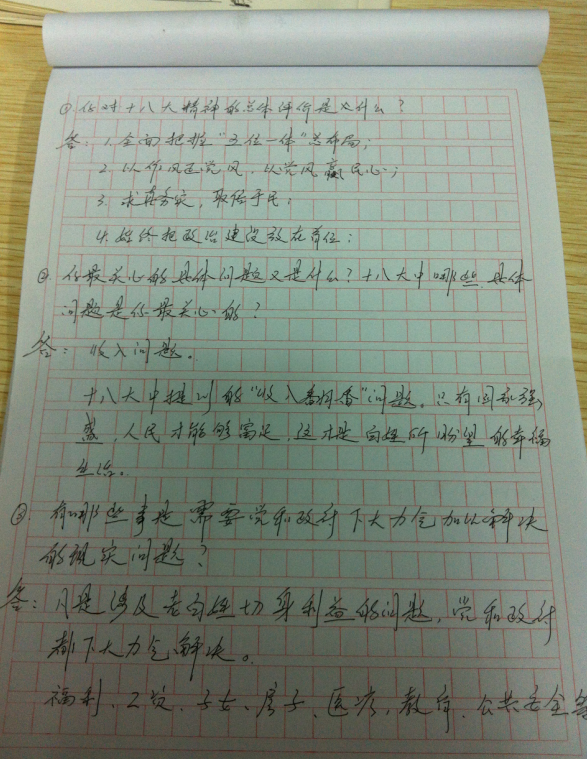 ①你对十八大精神的总体评价是为什么?
答:1.全面把握“五位一体”总布局;
2.以作风正党风,以党风赢民心;
3.求真务实,取信于民;
4.始终把政治建设放在首位;
②.你最关心的具体问题又是什么?十八大中哪些具体
问题是你最关心的?
答:收入问题。
十八大中提到的“收入翻番”问题。只有国家强
盛,人民才能够富足,这才是百姓所盼望的幸福
生活。
③.有哪些事是需要党和政府下大力气加以解决
的现实问题?
答:凡是涉及老百姓切身利益的问题,党和政府
都下大力气解决。
福利、工资、子女、房子、医疗、教育、公共安全等